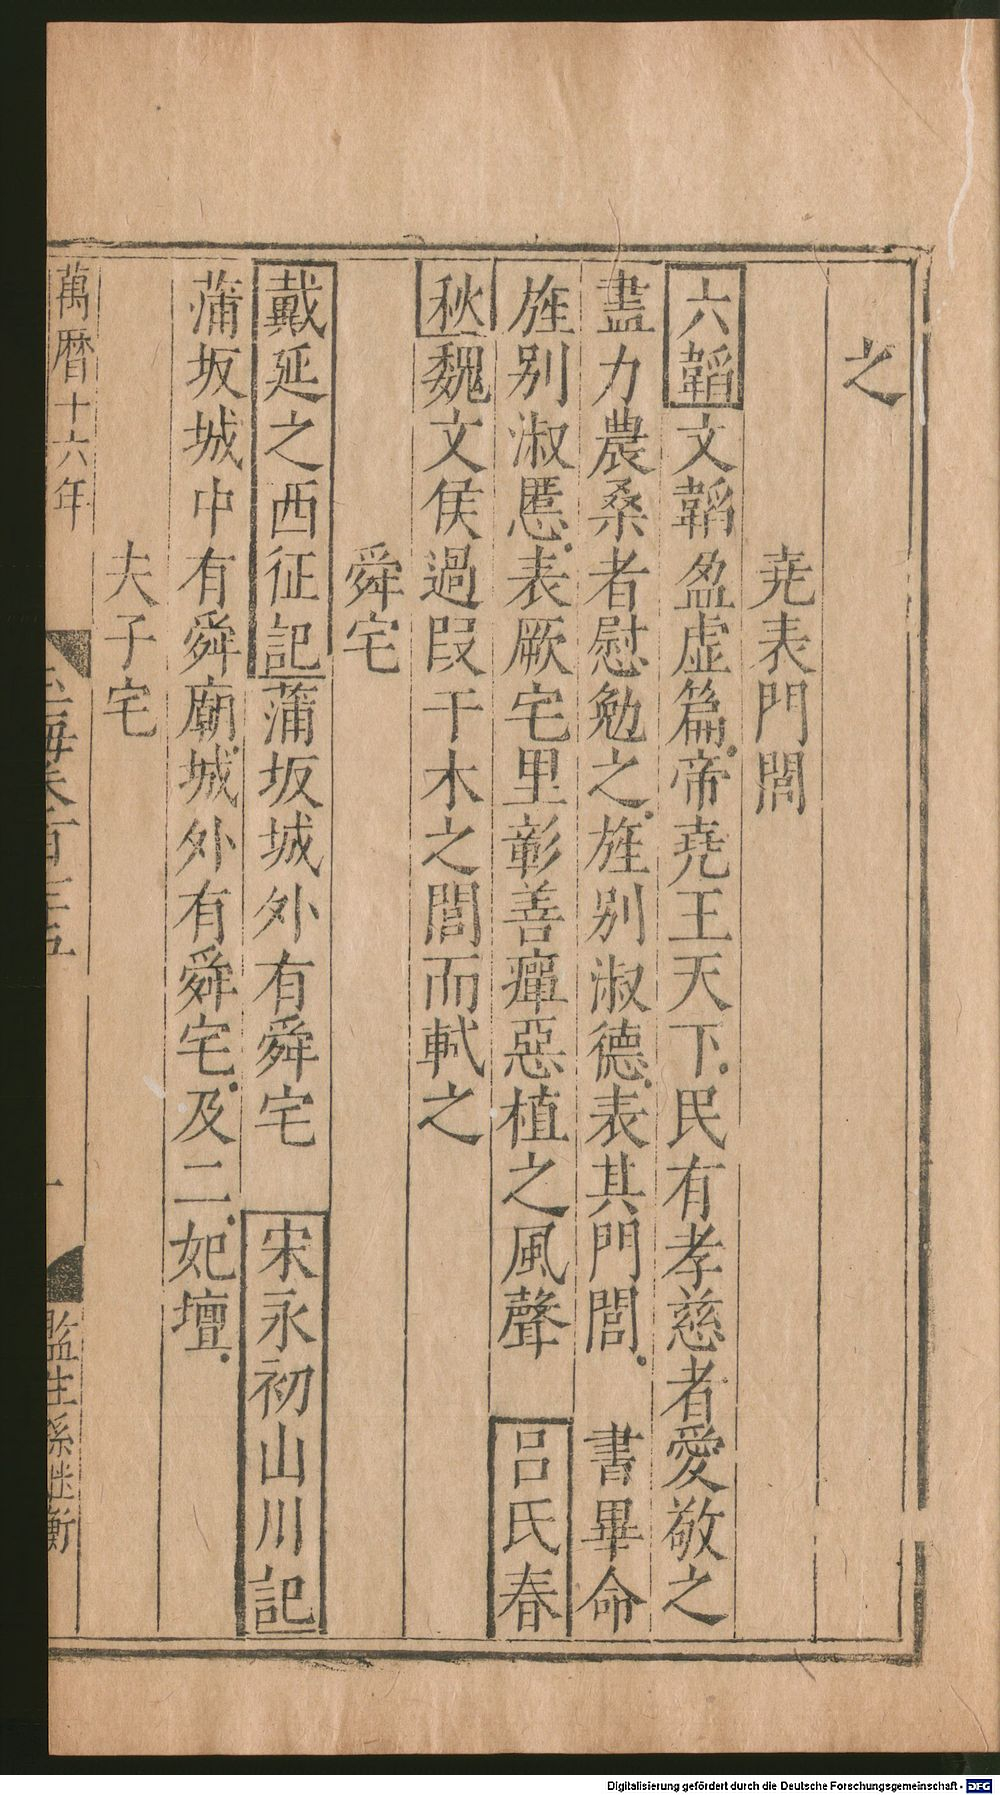 之
堯表門閭
六韜文韜盈虛篇帝堯王天下民有孝慈者愛敬之
盡力農桑者慰勉之旌別淑德表其門閭　書畢命
旌別淑慝表厥宅里彰善癉惡植之風聲　呂氏春
秋魏文侯過段干木之閭而軾之
舜宅
戴延之西征記蒲坂城外有舜宅　宋永初山川記
蒲坂城中有舜廟城外有舜宅及二妃壇
夫子宅
萬曆十六年
一
監生孫
Digitalisierung gefördert durch die Deutsche Forschungsgemeinschaft - DFG